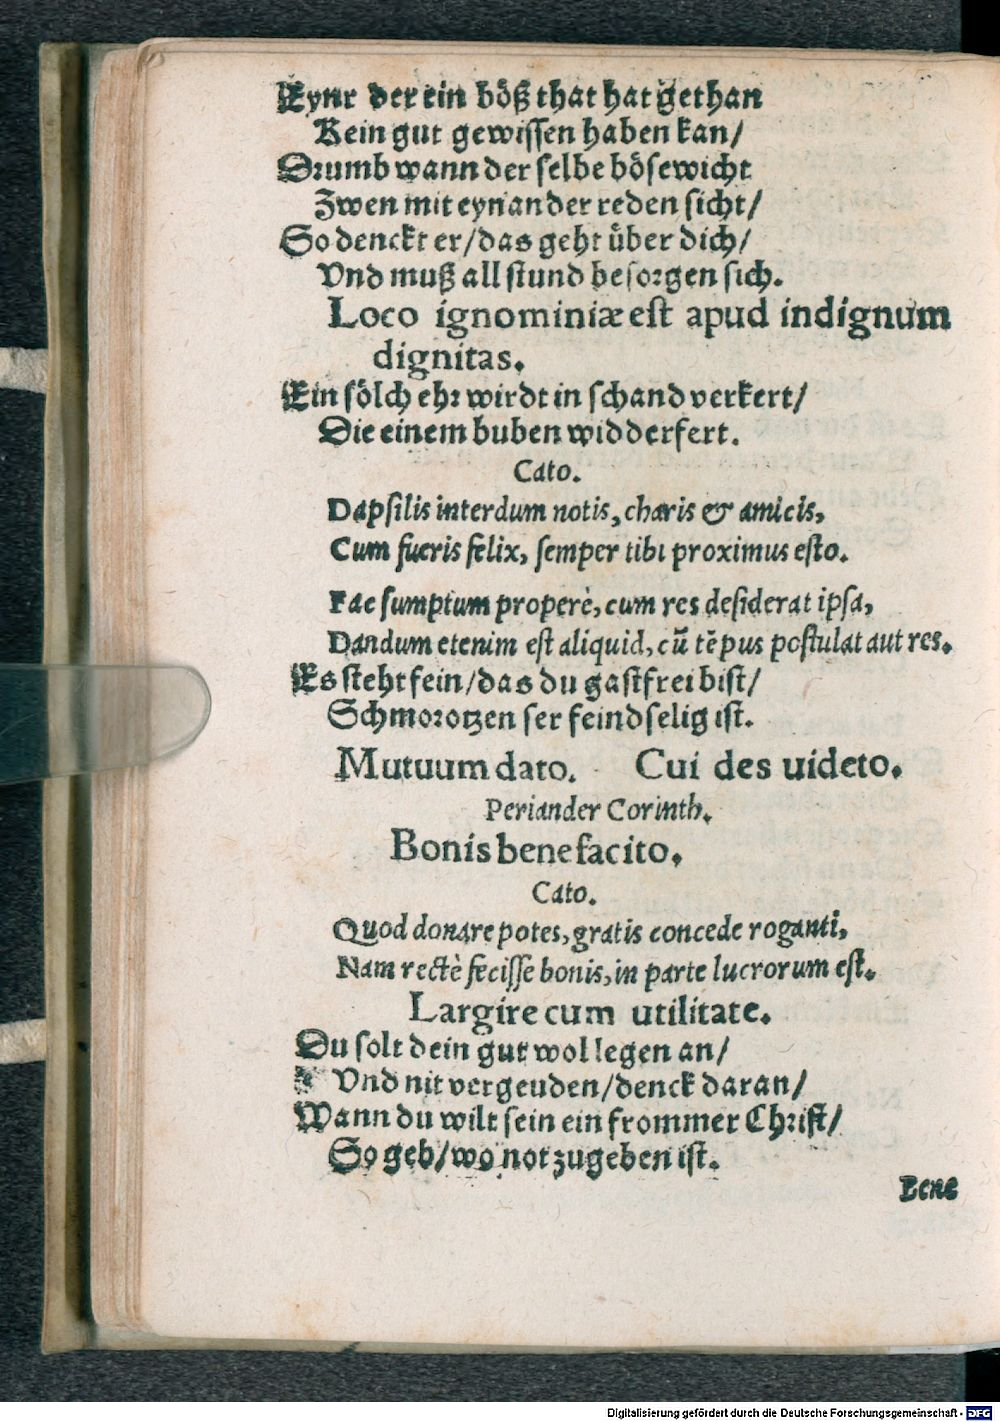 Eynr der ein böß that hat gethan
Kein gut gewissen haben kan/
Drumb wann der selbe bösewicht
Zwen mit eynander reden sicht/
So denckt er/das geht über dich/
Vnd muß all stund besorgen sich.
Loco ignominiæ est apud indignum
dignitas.
Ein sölch ehr wirdt in schand verkert/
Die einem buben widderfert.
Cato.
Dapsilis interdum notis, charis & amicis,
Cum fueris felix, semper tibi proximus esto.
Fac sumptum properè, cum res desiderat ipsa,
Dandum etenim est aliquid, cũ tẽpus postulat aut res.
Es steht fein/das du gastfrei bist/
Schmorotzen ser feindselig ist.
Mutuum dato. Cui des uideto.
Periander Corinth.
Bonis benefacito.
Cato.
Quod donare potes, gratis concede roganti,
Nam rectè fecisse bonis, in parte lucrorum est.
Largire cum utilitate.
Du solt dein gut wol legen an/
Vnd nit vergeuden/denck daran/
Wann du wilt sein ein frommer Christ/
So geb/wo not zugeben ist.
Bene
Digitalisierung gefördert durch die Deutsche Forschungsgemeinschaft - DFG